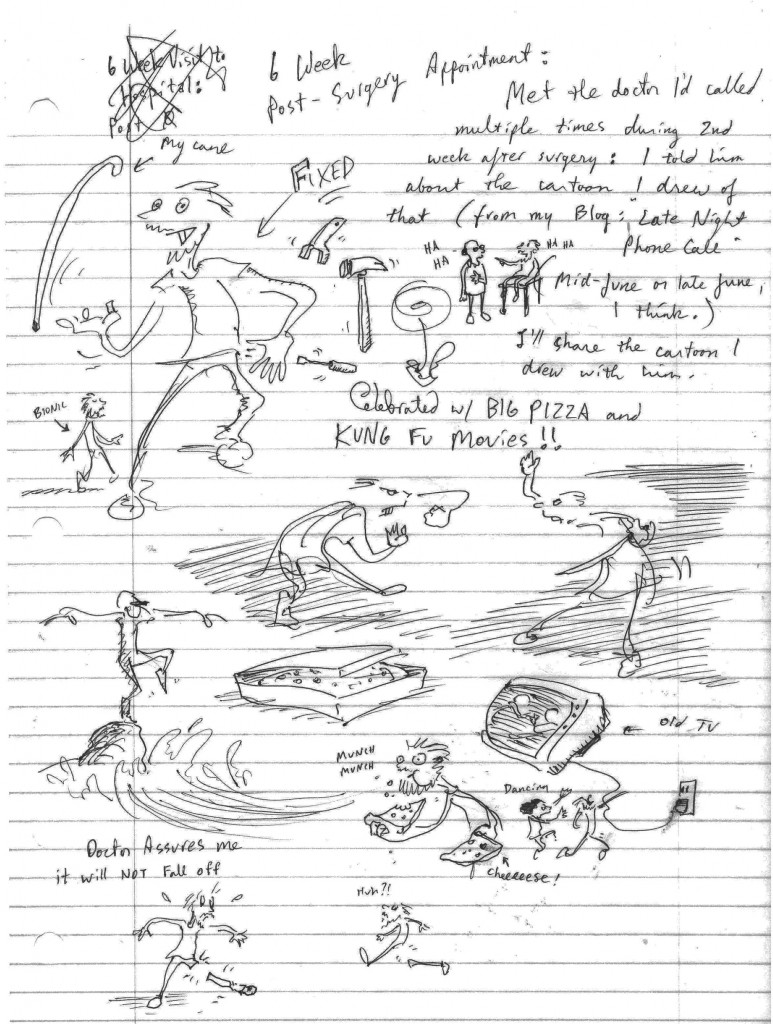 6 Week Visit to
Hospital:
Post
6 Week
Post-Surgery Appointment:
Met the doctor I'd called
multiple times during 2nd
week after surgery: I told him
about the cartoon I drew of
that (from my Blog: "Late Night
Phone Call"
Mid-June or late June,
I think.)
I'll share the cartoon I
drew with him.
My cane
FIXED
HA
HA
HA HA
BIONIC
Celebrated w/ BIG PIZZA and
KUNG FU Movies!!
Old TV
MUNCH
MUNCH
Dancing
cheeeeese!
Doctor Assures me
it will NOT Fall off
Huh?!